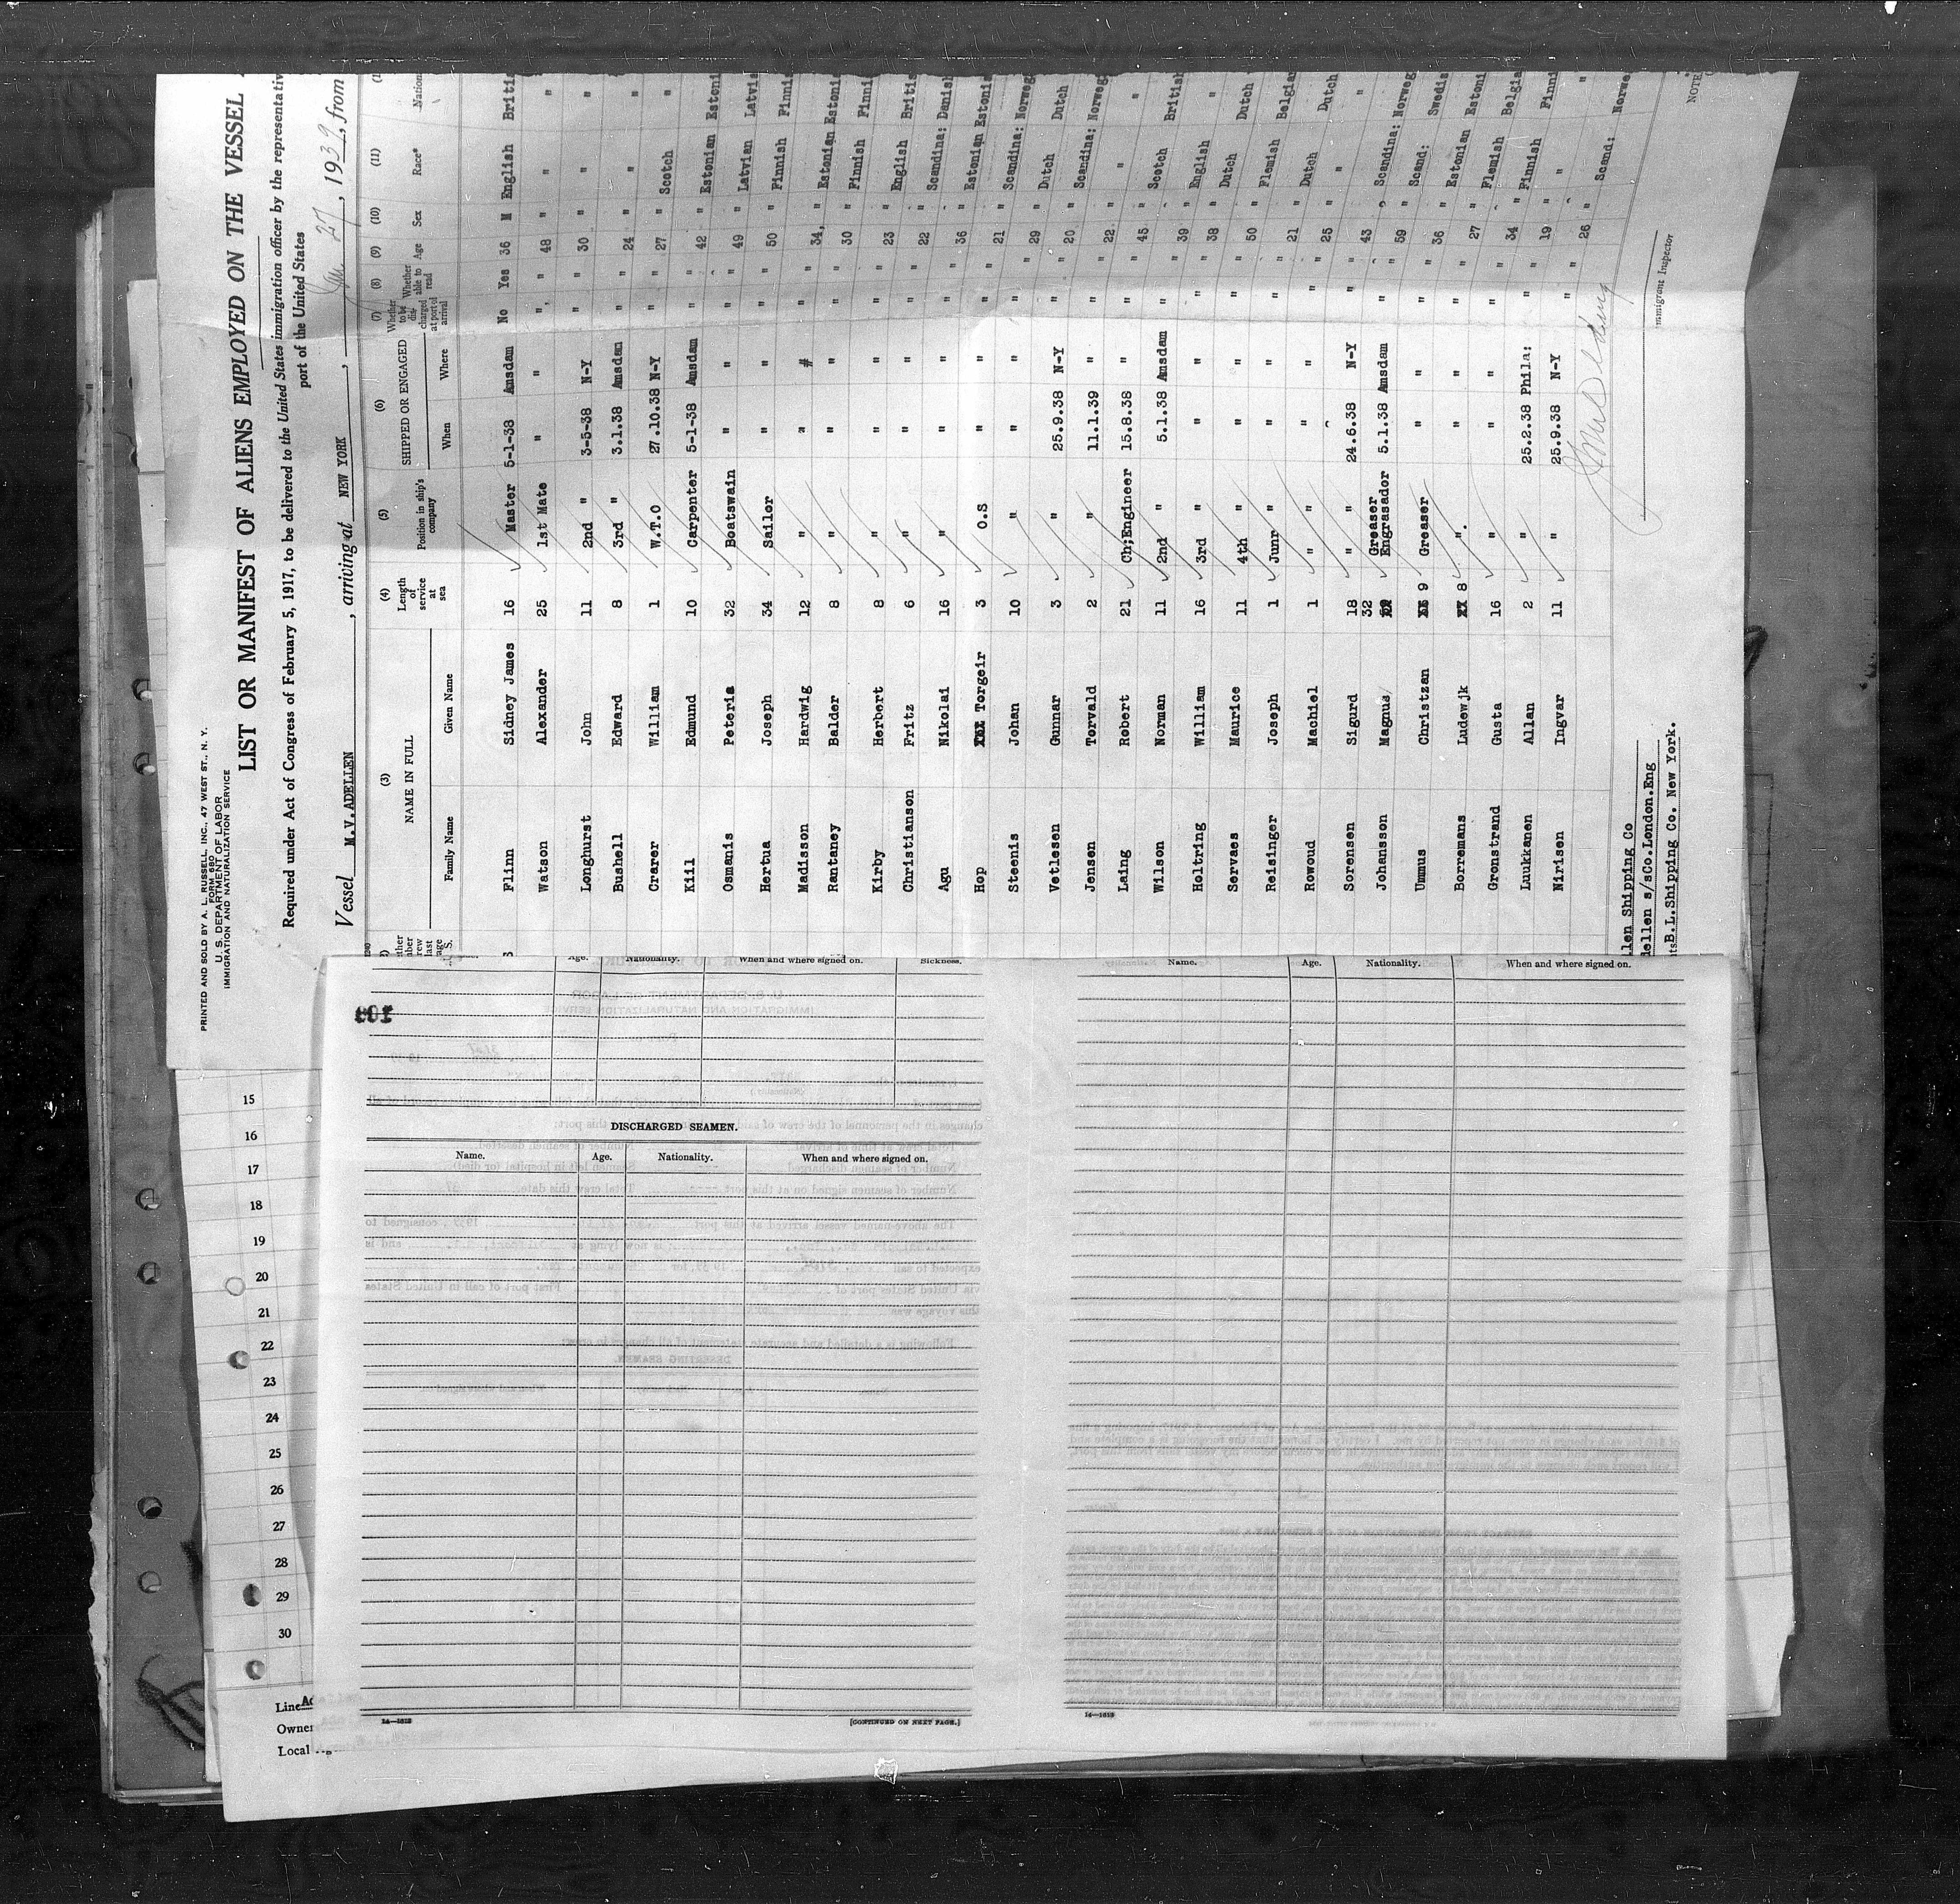 PRINTED AND SOLD BY A. L. RUSSELL, INC., 47 WEST ST., N. Y.
FORM 680
U. S. DEPARTMENT OF LABOR
IMMIGRATION AND NATURALIZATION SERVICE
LIST OR MANIFEST OF ALIENS EMPLOYED ON THE VESSEL
Required under Act of Congress of February 5, 1917, to be delivered to the United States immigration officer by the representativ
port of the United States
Vessel M.V.ADELLEN, arriving at NEW YORK, Jan. 27, 1939, from
(3) (4) (5) (6) (7) (8) (9) (10) (11)
NAME IN FULL Length of service at sea Position in ship's company SHIPPED OR ENGAGED Whether to be discharged at port of arrival Whether able to read Age Sex Race* Nation
Family Name Given Name When Where
Flinn Sidney James 16 Master 5-1-38 Amsdam No Yes 36 M English Britis
Watson Alexander 25 1st Mate " " " " 48 " " "
Longhurst John 11 2nd " 3-5-38 N-Y " " 30 " " "
Bushell Edward 8 3rd " 3.1.38 Amsdam " " 24 " " "
Crarer William 1 W.T.O 27.10.38 N-Y " " 27 " Scotch "
Kiil Edmund 10 Carpenter 5-1-38 Amsdam " " 42 " Estonian Estoni
Osmanis Peteris 32 Boatswain " " " " 49 " Latvian Latvis
Hertua Joseph 34 Sailor " " " " 50 " Finnish Finnis
Madisson Hardwig 12 " " " " " 34, " Estonian Estonia
Rantaney Balder 8 " " " " " 30 " Finnish Finni
Kirby Herbert 8 " " " " " 23 " English Britis
Christianson Fritz 6 " " " " " 22 " Scandina: Danish
Agu Nikolai 16 " " " " " 36 " Estonian Estonia
Hop Torgeir 3 O.S " " " " 21 " Scandina: Norweg
Steenis Johan 10 " " " " " 29 " Dutch Dutch
Vetlesen Gunnar 3 " 25.9.38 N-Y " " 20 " Scandina: Norweg
Jensen Torvald 2 " 11.1.39 " " " 22 " " "
Laing Robert 21 Ch;Engineer 15.8.38 " " " 45 " Scotch British
Wilson Norman 11 2nd " 5.1.38 Amsdam " " 39 " English "
Holtring William 16 3rd " " " " " 38 " Dutch Dutch
Servaes Maurice 11 4th " " " " " 50 " Flemish Belgian
Reisinger Joseph 1 Junr " " " " " 21 " Dutch Dutch
Rowoud Machiel 1 " " " " " 25 " " "
Sorensen Sigurd 18 " 24.6.38 N-Y " " 43 " Scandina: Norweg
Johansson Magnus 32 Greaser Engrasador 5.1.38 Amsdam " " 59 " Scand: Swedis
Ummus Christzan 9 Greaser " " " " 36 " Estonian Estoni
Borremans Ludewjk 8 " " " " " 27 " Flemish Belgia
Gronstrand Gusta 16 " " " " " 34 " Finnish Finni
Luukkanen Allan 2 " 25.2.38 Phila: " " 19 " " "
Nirisen Ingvar 11 " 25.9.38 N-Y " " 26 " Scand: Norwe
Immigrant Inspector
NOTE
len Shipping Co
dellen s/sCo.London.Eng
tsB.L.Shipping Co. New York.
Age. Nationality. When and where signed on. Sickness.
DISCHARGED SEAMEN.
Name. Age. Nationality. When and where signed on.
14—1613
[CONTINUED ON NEXT PAGE.]
Name. Age. Nationality. When and where signed on.
14—1613
15
16
17
18
19
20
21
22
23
24
25
26
27
28
29
30
Line
Owner
Local